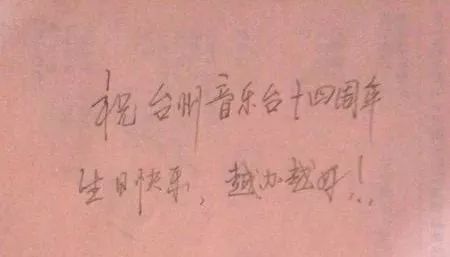 祝台州音乐台十四周年
生日快乐，越办越好！